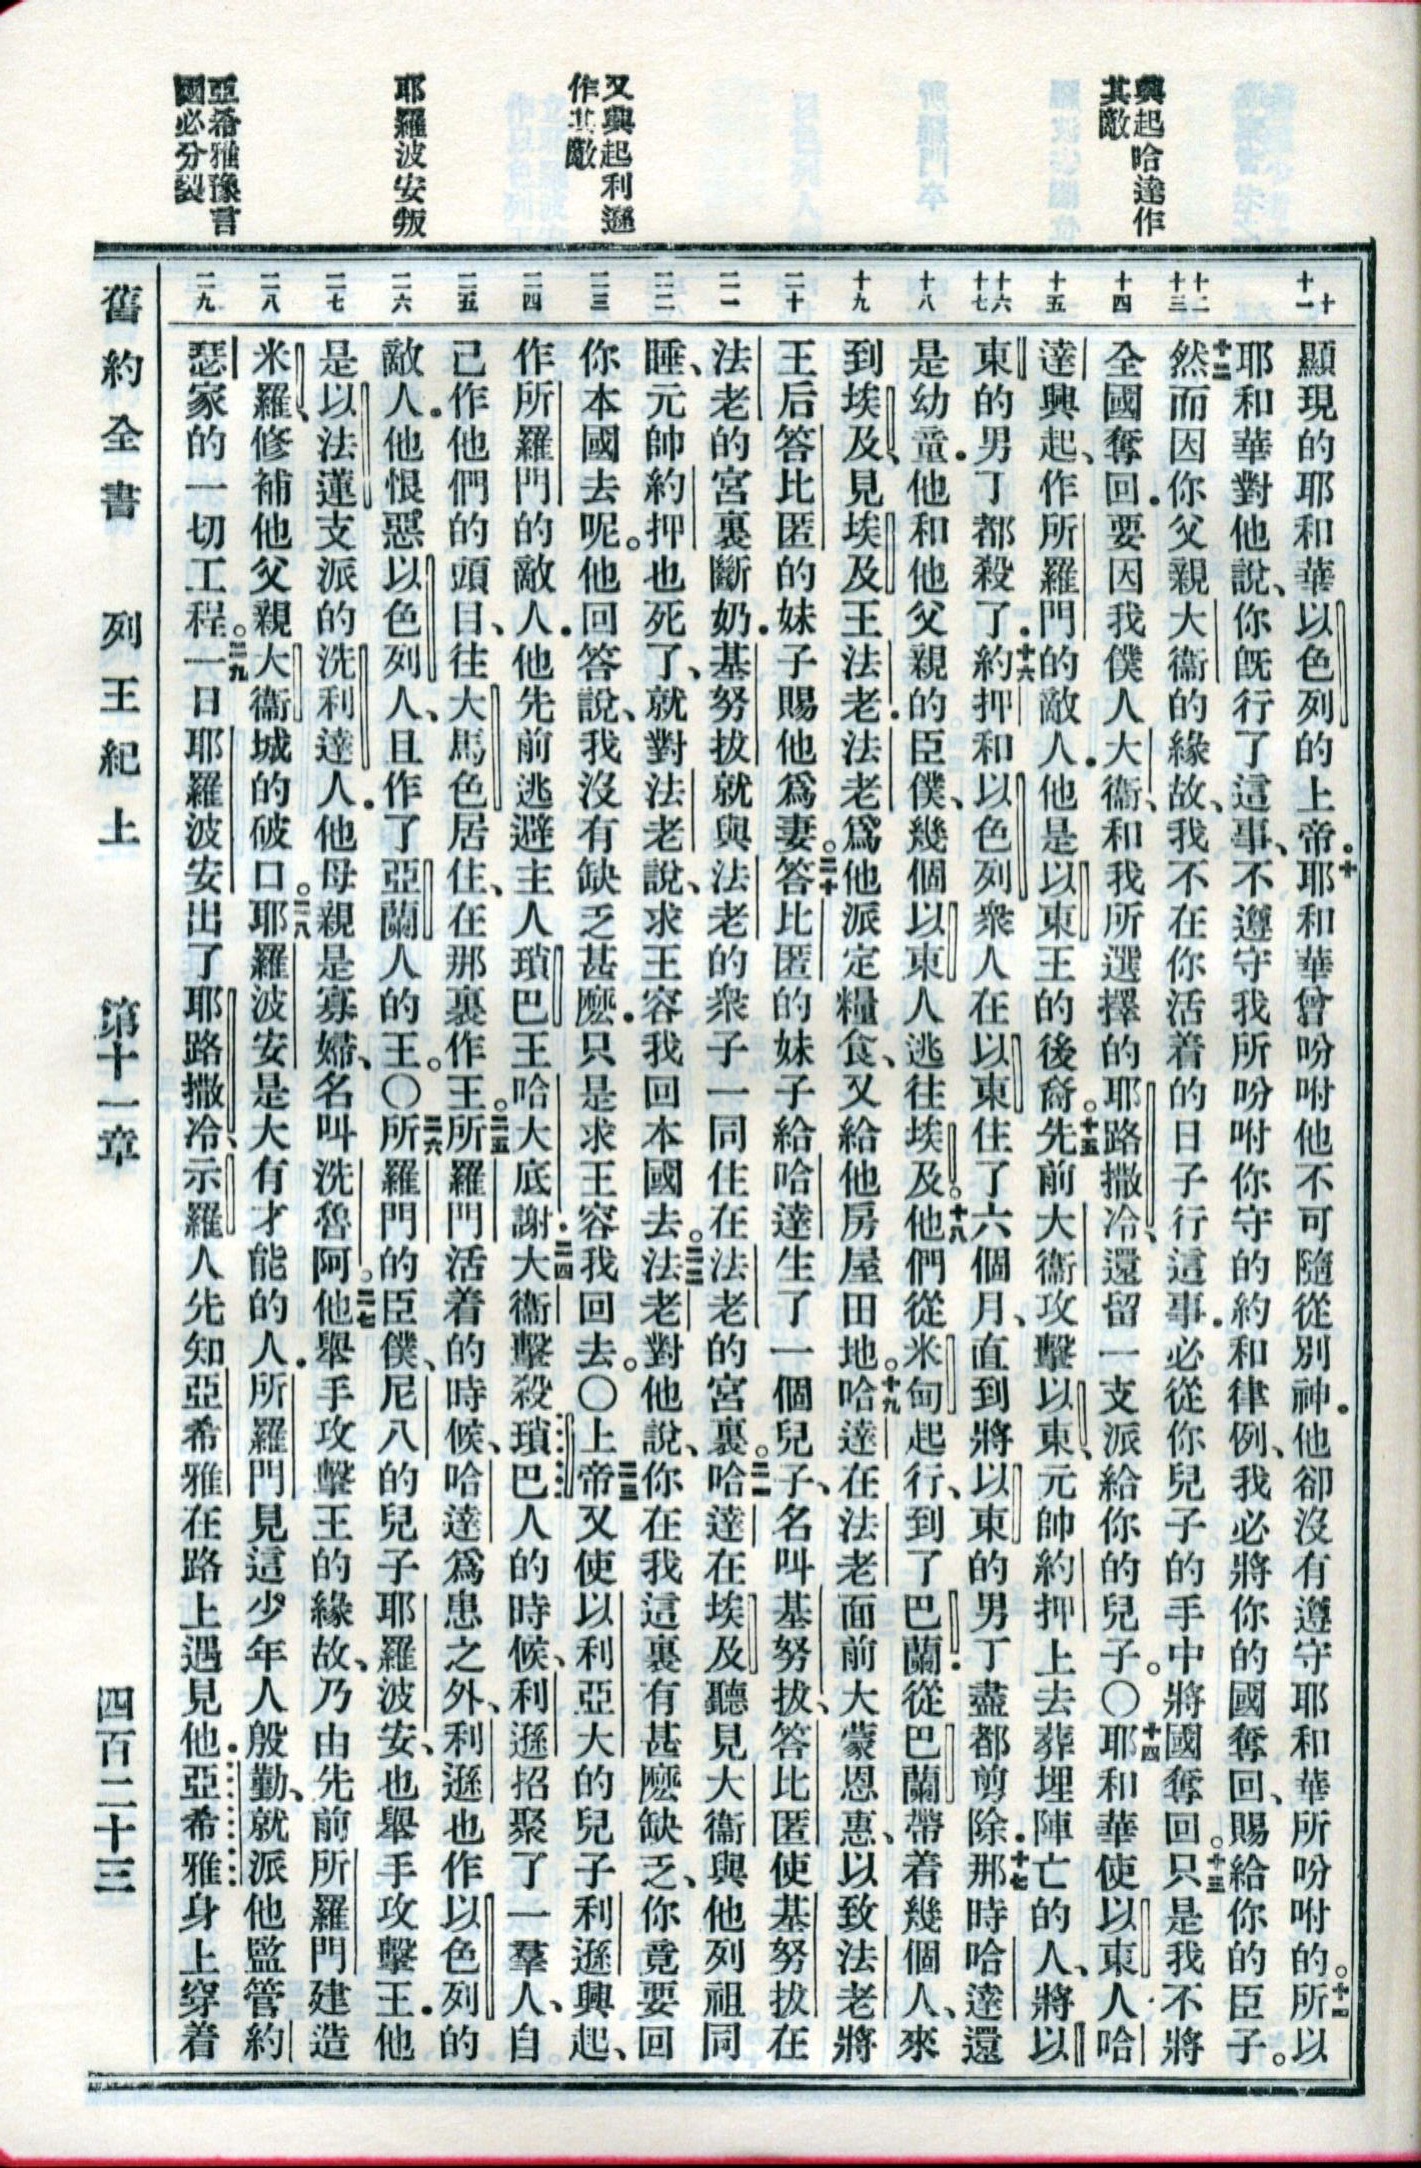 興起哈達作
其敵
又興起利遜
作其敵
耶羅波安叛
亞希雅豫言
國必分裂
十
十一
十二
十三
十四
十五
十六
十七
十八
十九
二十
二一
二二
二三
二四
二五
二六
二七
二八
二九
顯現的耶和華以色列的上帝。十耶和華曾吩咐他不可隨從別神．他卻沒有遵守耶和華所吩咐的。十一所以
耶和華對他說、你旣行了這事、不遵守我所吩咐你守的約和律例、我必將你的國奪回、賜給你的臣子。
十二然而因你父親大衞的緣故、我不在你活着的日子行這事．必從你兒子的手中將國奪回。十三只是我不將
全國奪回．要因我僕人大衞、和我所選擇的耶路撒冷、還留一支派給你的兒子。〇十四耶和華使以東人哈
達興起、作所羅門的敵人．他是以東王的後裔。十五先前大衞攻擊以東、元帥約押上去葬埋陣亡的人、將以
東的男丁都殺了．十六約押和以色列衆人在以東住了六個月、直到將以東的男丁盡都剪除．十七那時哈達還
是幼童．他和他父親的臣僕、幾個以東人逃往埃及。十八他們從米甸起行、到了巴蘭．從巴蘭帶着幾個人、來
到埃及、見埃及王法老．法老爲他派定糧食、又給他房屋田地。十九哈達在法老面前大蒙恩惠、以致法老將
王后答比匿的妹子賜他爲妻。二十答比匿的妹子給哈達生了一個兒子、名叫基努拔、答比匿使基努拔在
法老的宮裏斷奶．基努拔就與法老的衆子一同住在法老的宮裏。二一哈達在埃及聽見大衞與他列祖同
睡、元帥約押也死了、就對法老說、求王容我回本國去。二二法老對他說、你在我這裏有甚麽缺乏、你竟要回
你本國去呢。他回答說、我沒有缺乏甚麽．只是求王容我回去。〇二三上帝又使以利亞大的兒子利遜興起、
作所羅門的敵人．他先前逃避主人瑣巴王哈大底謝．二四大衞擊殺瑣巴人的時候、利遜招聚了一羣人、自
己作他們的頭目、往大馬色居住、在那裏作王。二五所羅門活着的時候、哈達爲患之外、利遜也作以色列的
敵人．他恨惡以色列人、且作了亞蘭人的王。〇二六所羅門的臣僕、尼八的兒子耶羅波安、也舉手攻擊王．他
是以法蓮支派的洗利達人．他母親是寡婦、名叫洗魯阿。二七他舉手攻擊王的緣故、乃由先前所羅門建造
米羅、修補他父親大衞城的破口。二八耶羅波安是大有才能的人．所羅門見這少年人殷勤、就派他監管約
瑟家的一切工程。二九一日耶羅波安出了耶路撒冷、示羅人先知亞希雅在路上遇見他．亞希雅身上穿着
舊約全書　列王紀上　第十一章　四百二十三